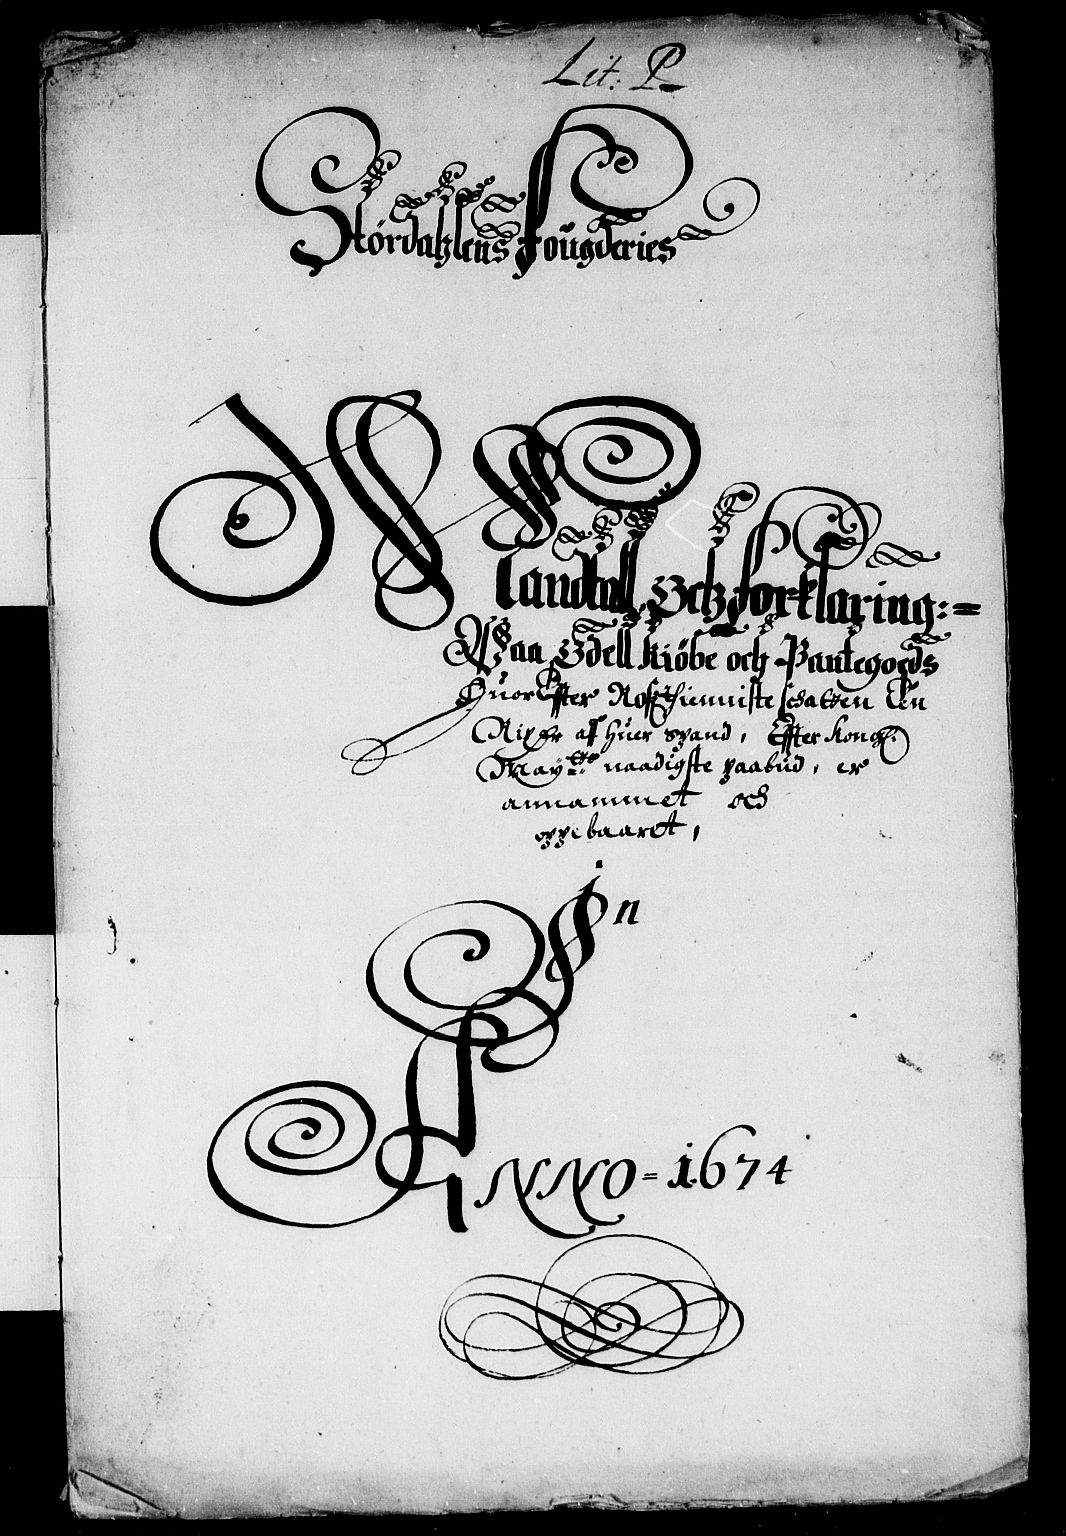 Lit: P
Størdahlens Fougderies
Mandtall Och forklaring:=
Paa Odell Kiøbe och Pantegoeds
Huor Effter Rosthienniste schatten En
Rixdr af huer Spand, Effter Kongl:
Mayttz naadigste paabud, er
annammet och
oppebaaret,
In
ANNO = 1674